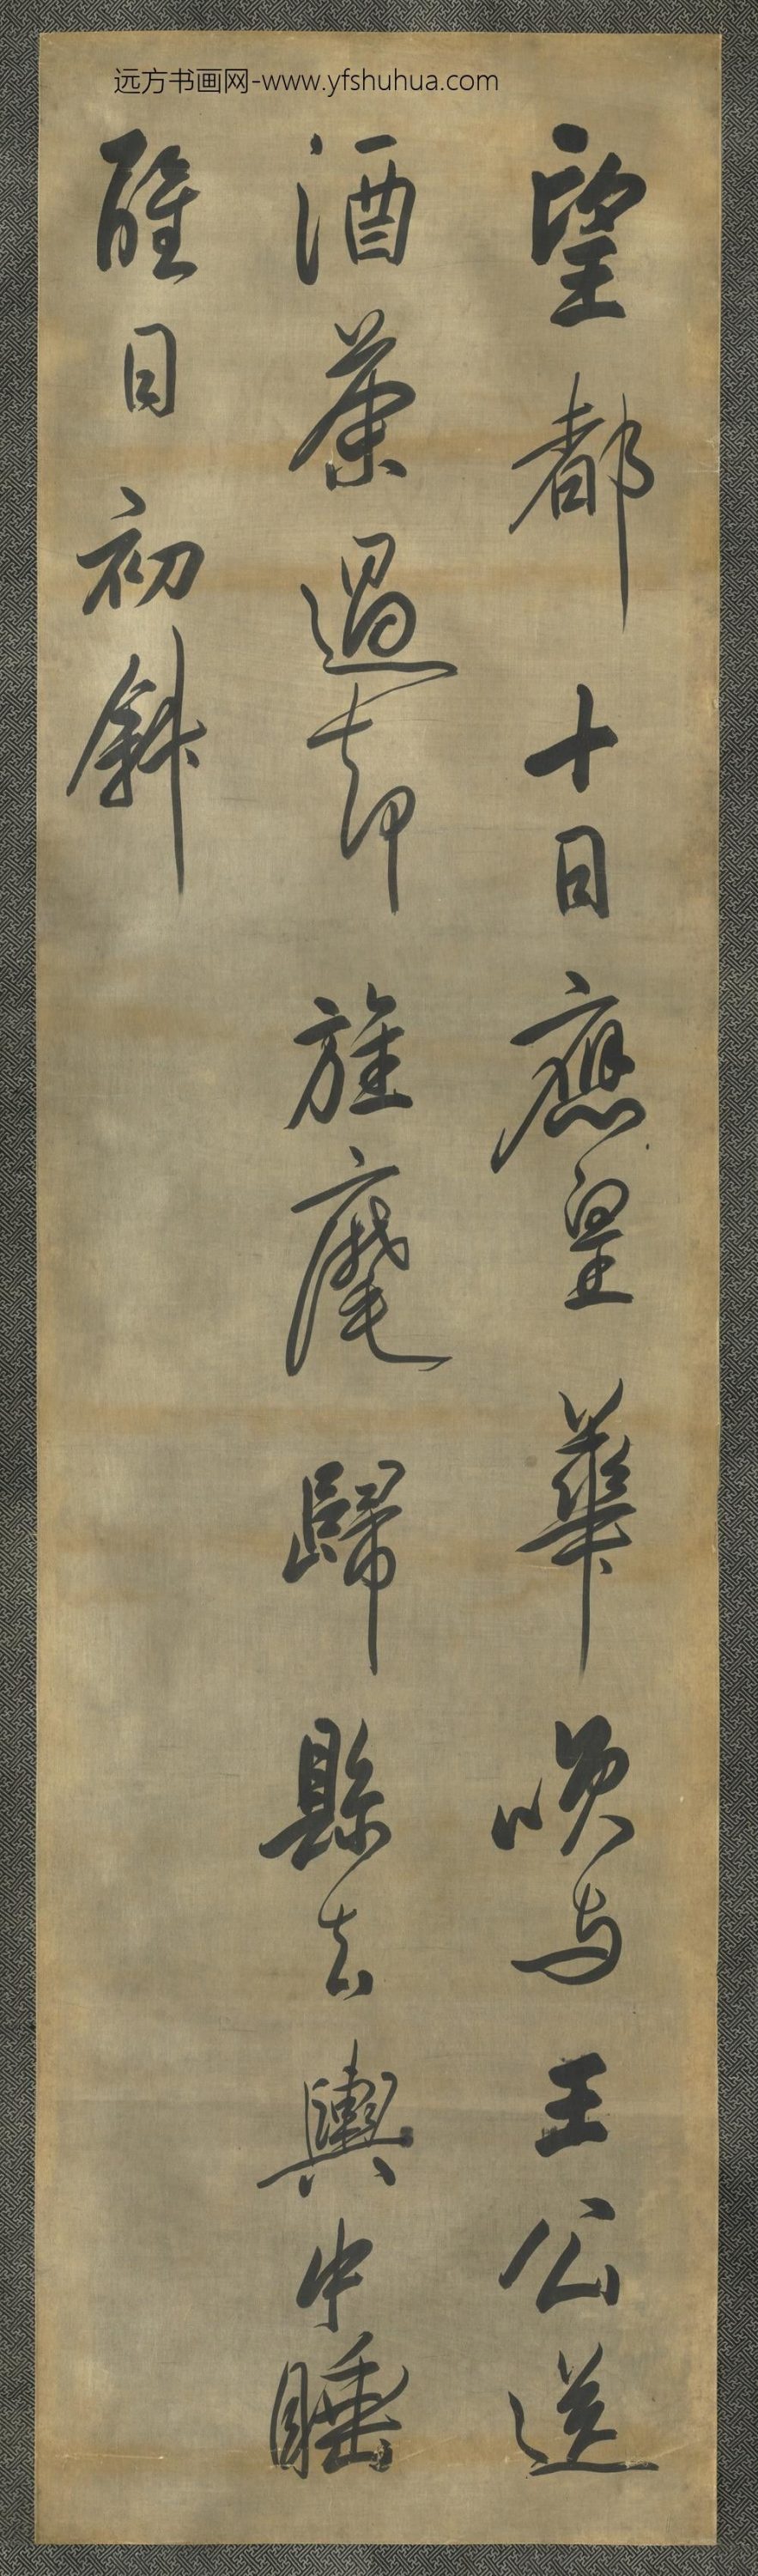 远方书画网-www.yfshuhua.com
望都十日應皇華嘆与王公送
酒茶過却旌麾歸縣去輿中睡
醒日初斜